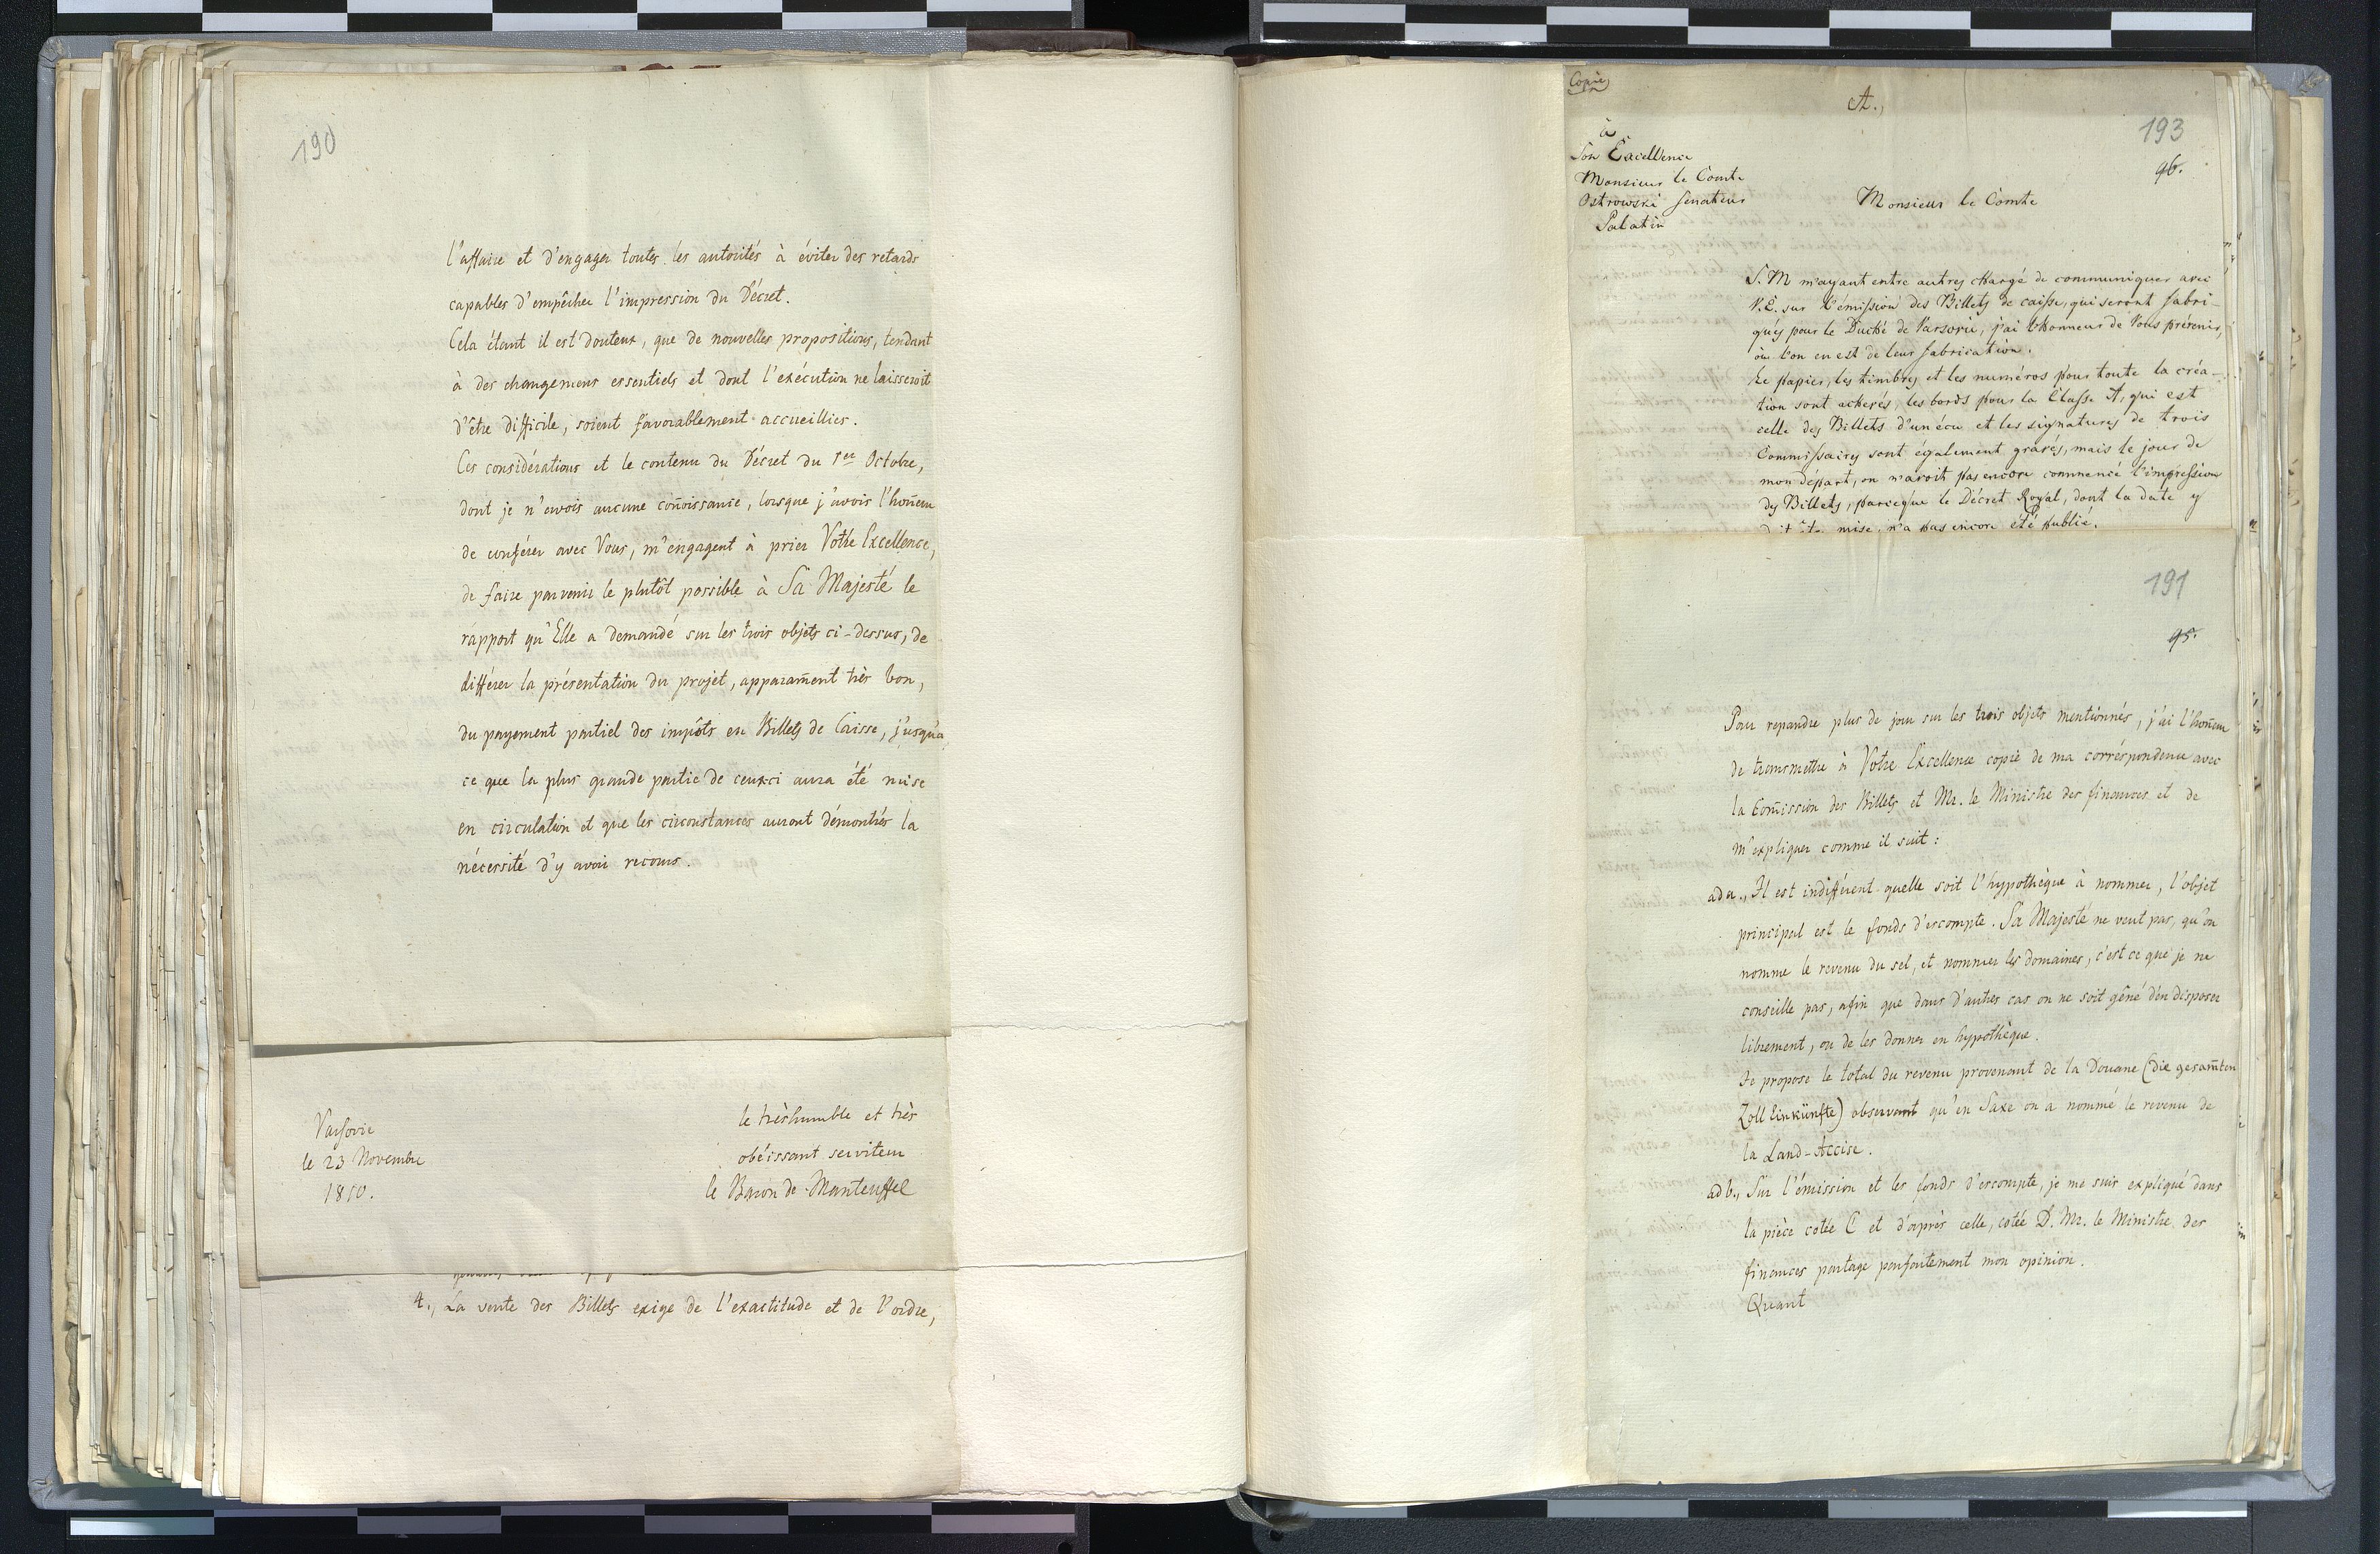 190
l'affaire et d'engager toutes les autorités à éviter des retards
capables d'empêcher l'impression du Décret.
Cela étant il est douteux, que de nouvelles propositions, tendant
à des changemens essentiels et dont l'exécution ne laisseroit
d'être difficile, soient favorablement accueillies.
Ces considérations et le contenu du Décret du 1er Octobre,
dont je n'avois aucune coñoissance, lorsque j'avois l'hoñeur
de conférer avec Vous, m'engagent à prier Votre Excellence,
de faire parvenir le plutôt possible à Sa Majesté le
rapport qu'Elle a demandé sur les trois objets ci-dessus, de
différer la présentation du projet, apparam̃ent très bon,
du payement partiel des impôts en Billets de Caisse, jusqu'a
ce que la plus grande partie de ceux-ci aura été mise
en circulation et que les circonstances auront démontrés la
nécessité d'y avoir recours.
Varsovie
le 23 Novembre
1810.
le trèshumble et très
obéissant serviteur
le Baron de Manteuffel
4., La vente des Billets exige de l'exactitude et de l'ordre,
Copie
A.,
193
96.
à
Son Excellence
Monsieur le Comte
Ostrowski Senateur
Palatin
Monsieur le Comte
S. M m'ayant entre autres chargé de communiquer avec
V. E. sur l'émission des Billets de caisse, qui seront fabri-
qués pour le Duché de Varsovie, j'ai l'honneur de Vous prévenir,
où l'on en est de leur fabrication.
Le papier, les timbres et les numéros pour toute la créa-
tion sont achevés, les bords pour la Classe A, qui est
celle des Billets d'un écu et les signatures de trois
Commissaires sont également gravés, mais le jour de
mon départ, on n'avoit pas encore commencé l'impression
des Billets, parceque le Décret Royal, dont la date y
mise, n'a pas encore été publié.
191
95.
Pour repandre plus de jour sur les trois objets mentionnés, j'ai l'hoñeur
de transmettre à Votre Excellence copie de ma corréspondence avec
la Com̃ission des Billets et Mr. le Ministre des finances et de
m'expliquer comme il suit:
ad a., Il est indifférent quelle soit l'hypothèque à nommer, l'objet
principal est le fonds d'escompte. Sa Majesté ne veut pas, qu'on
nomme le revenu du sel, et nommer les domaines, c'est ce que je ne
conseille pas, afin que dans d'autres cas on ne soit gêné d'en disposer
librement, ou de les donner en hypothèque.
Je propose le total du revenu provenant de la Douane (die gesam̃ten
Zoll Einkünfte) observant qu'en Saxe on a nommé le revenu de
la Land-Accise.
ad b., Sur l'émission et les fonds d'escompte, je me suis expliqué dans
la pièce cotée C et d'après celle, cotée D. Mr. le Ministre des
finances partage parfaitement mon opinion.
Quant